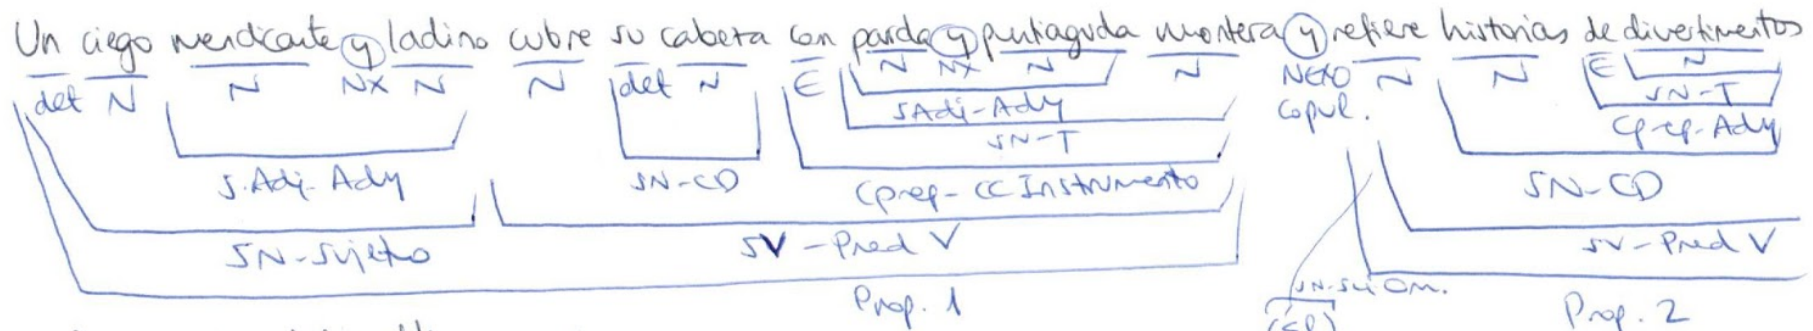 Un ciego mendicante y ladino cubre su cabeza con parda y puntiaguda montera y refiere historias de divertimentos
det N N NX N N det N E N NX N N NEXO N N E N
copul.
SAdj-Ady SN-T
SN-T Cprep-Ady
S.Adj-Ady SN-CD Cprep-CC Instrumento SN-CD
SN-Sujeto SV-Pred V SV-Pred V
SN-Su Om.
Prop. 1 Prop. 2